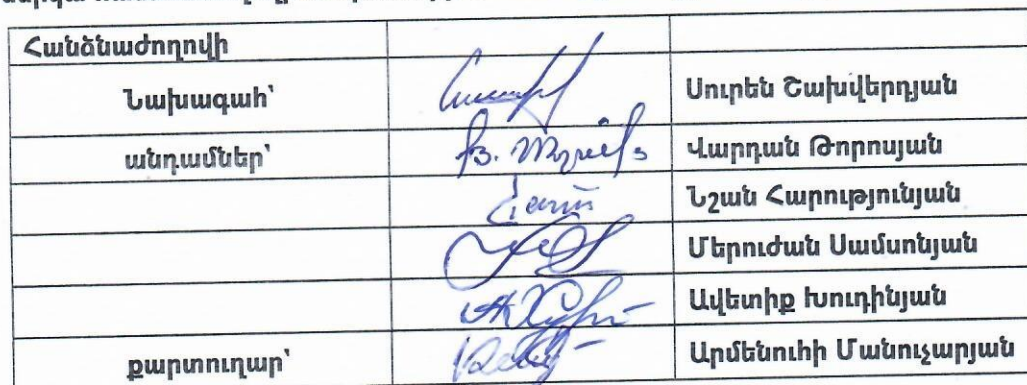 Հանձնաժողովի
Նախագահ՝ Սուրեն Շախվերդյան
անդամներ՝ Վարդան Թորոսյան
Նշան Հարությունյան
Մերուժան Սամսոնյան
Ավետիք Խուդինյան
քարտուղար՝ Արմենուհի Մանուչարյան